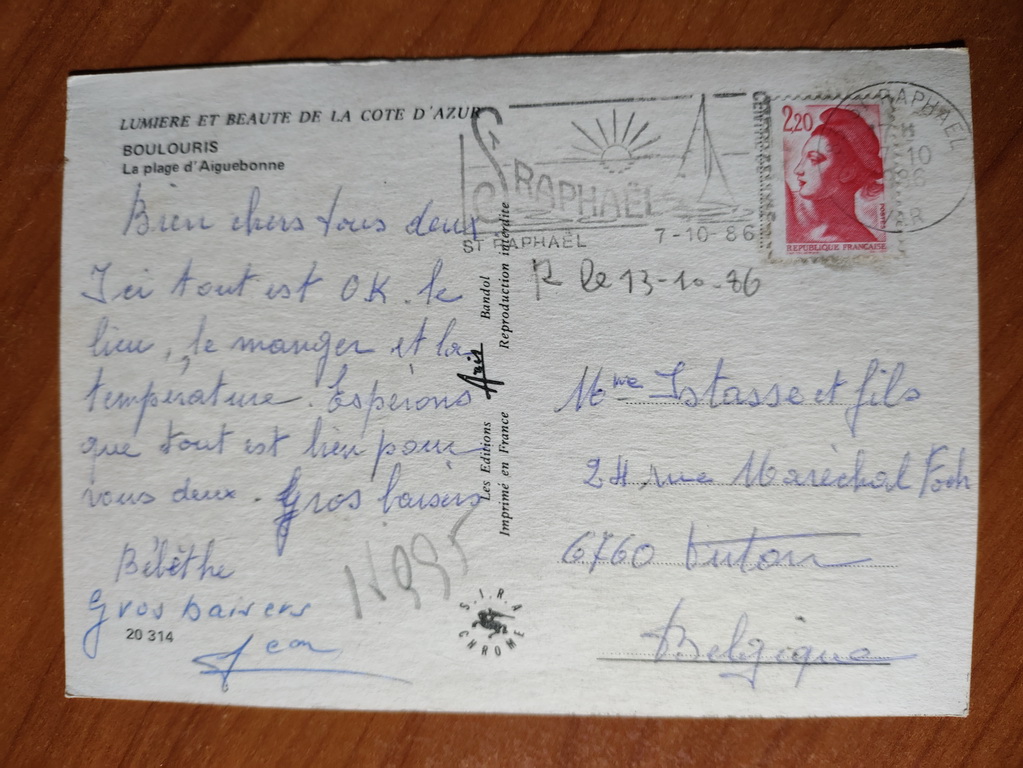 LUMIERE ET BEAUTE DE LA COTE D'AZUR
BOULOURIS
La plage d'Aiguebonne
Bien chers tous deux
Ici tout est OK. le
lieu, le manger et la
température. Espérons
que tout est bien pour
vous deux. Gros baisers
Bébèthe
Gros baisers
Jean
20 314
N995
Les Editions Aris Bandol
Imprimé en France Reproduction interdite
SIRA
CHROME
ST RAPHAËL
ST RAPHAËL 7-10-86
2,20
REPUBLIQUE FRANÇAISE
RAPHAEL
VAR
R le 13-10-86
Mme Istasse et fils
24 rue Maréchal Foch
6760 Virton
Belgique